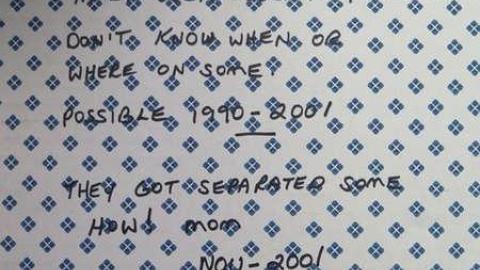 DON'T KNOW WHEN OR
WHERE ON SOME.
POSSIBLE 1990-2001
THEY GOT SEPARATED SOME
HOW! mom
NOV-2001